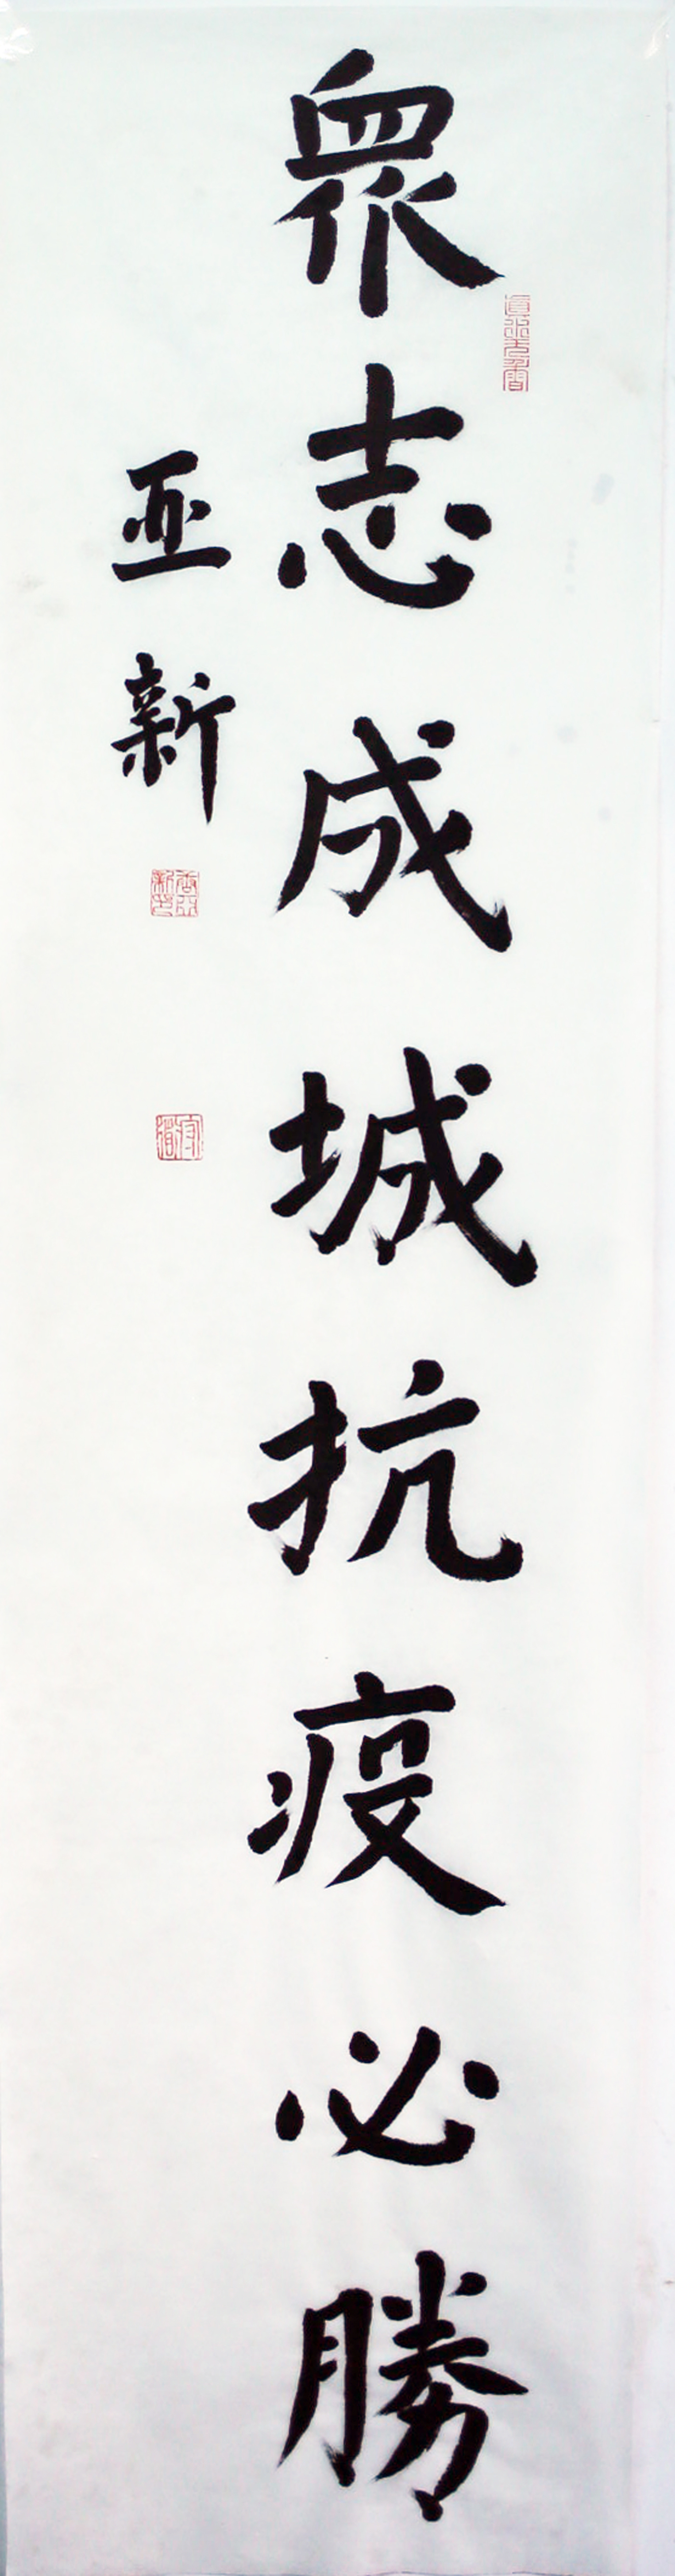 眾志成城抗疫必勝
亚新